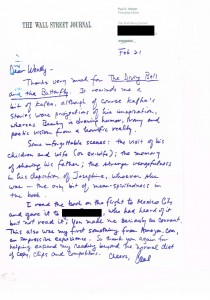 THE WALL STREET JOURNAL.
Feb 21
Dear Wendy –
Thanks very much for The Diving Bell
and the Butterfly. It reminds me a
bit of Kafka, although of course Kafka's
stories were projections of his imagination,
whereas Bauby is drawing humor, irony and
poetic vision from a horrific reality.
Some unforgettable scenes: the visit of his
children and wife (or ex-wife); the memory
of shaving his father; the strange vengefulness
in his depiction of Josephine, whoever she
was – the only bit of mean-spiritedness in
the book.
I read the book on the flight to Mexico City
and gave it to who had heard of it
but not read it. You made me
This also was my first something from Amazon.com,
an impressive experience. So thank you again for
helping expand my reading beyond the normal diet
of copy, clips and competitors. Cheers,
Paul